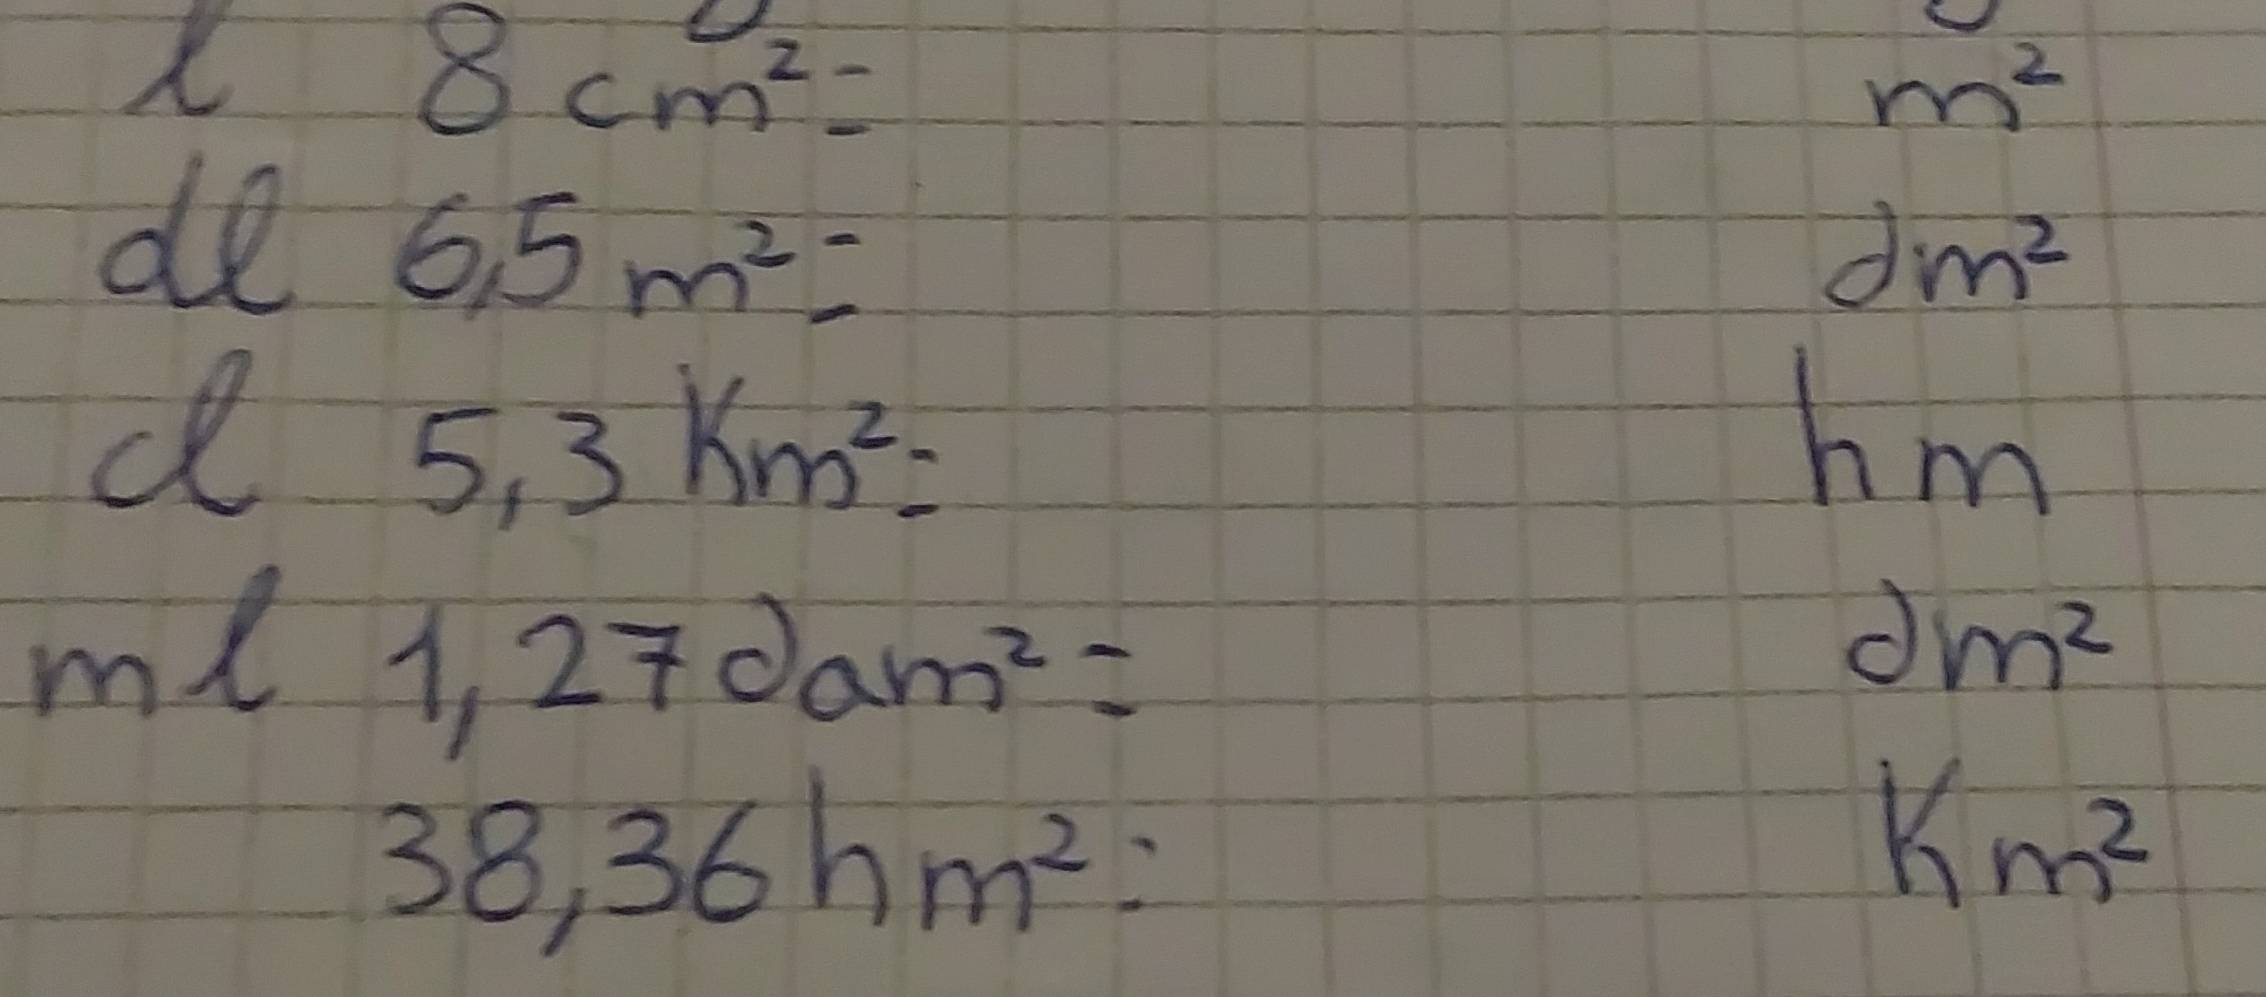 l 8 cm²= m²
dl 6,5 m²= dm²
cl 5,3 Km²= hm
ml 1,27 dam²= dm²
38,36 hm²= Km²